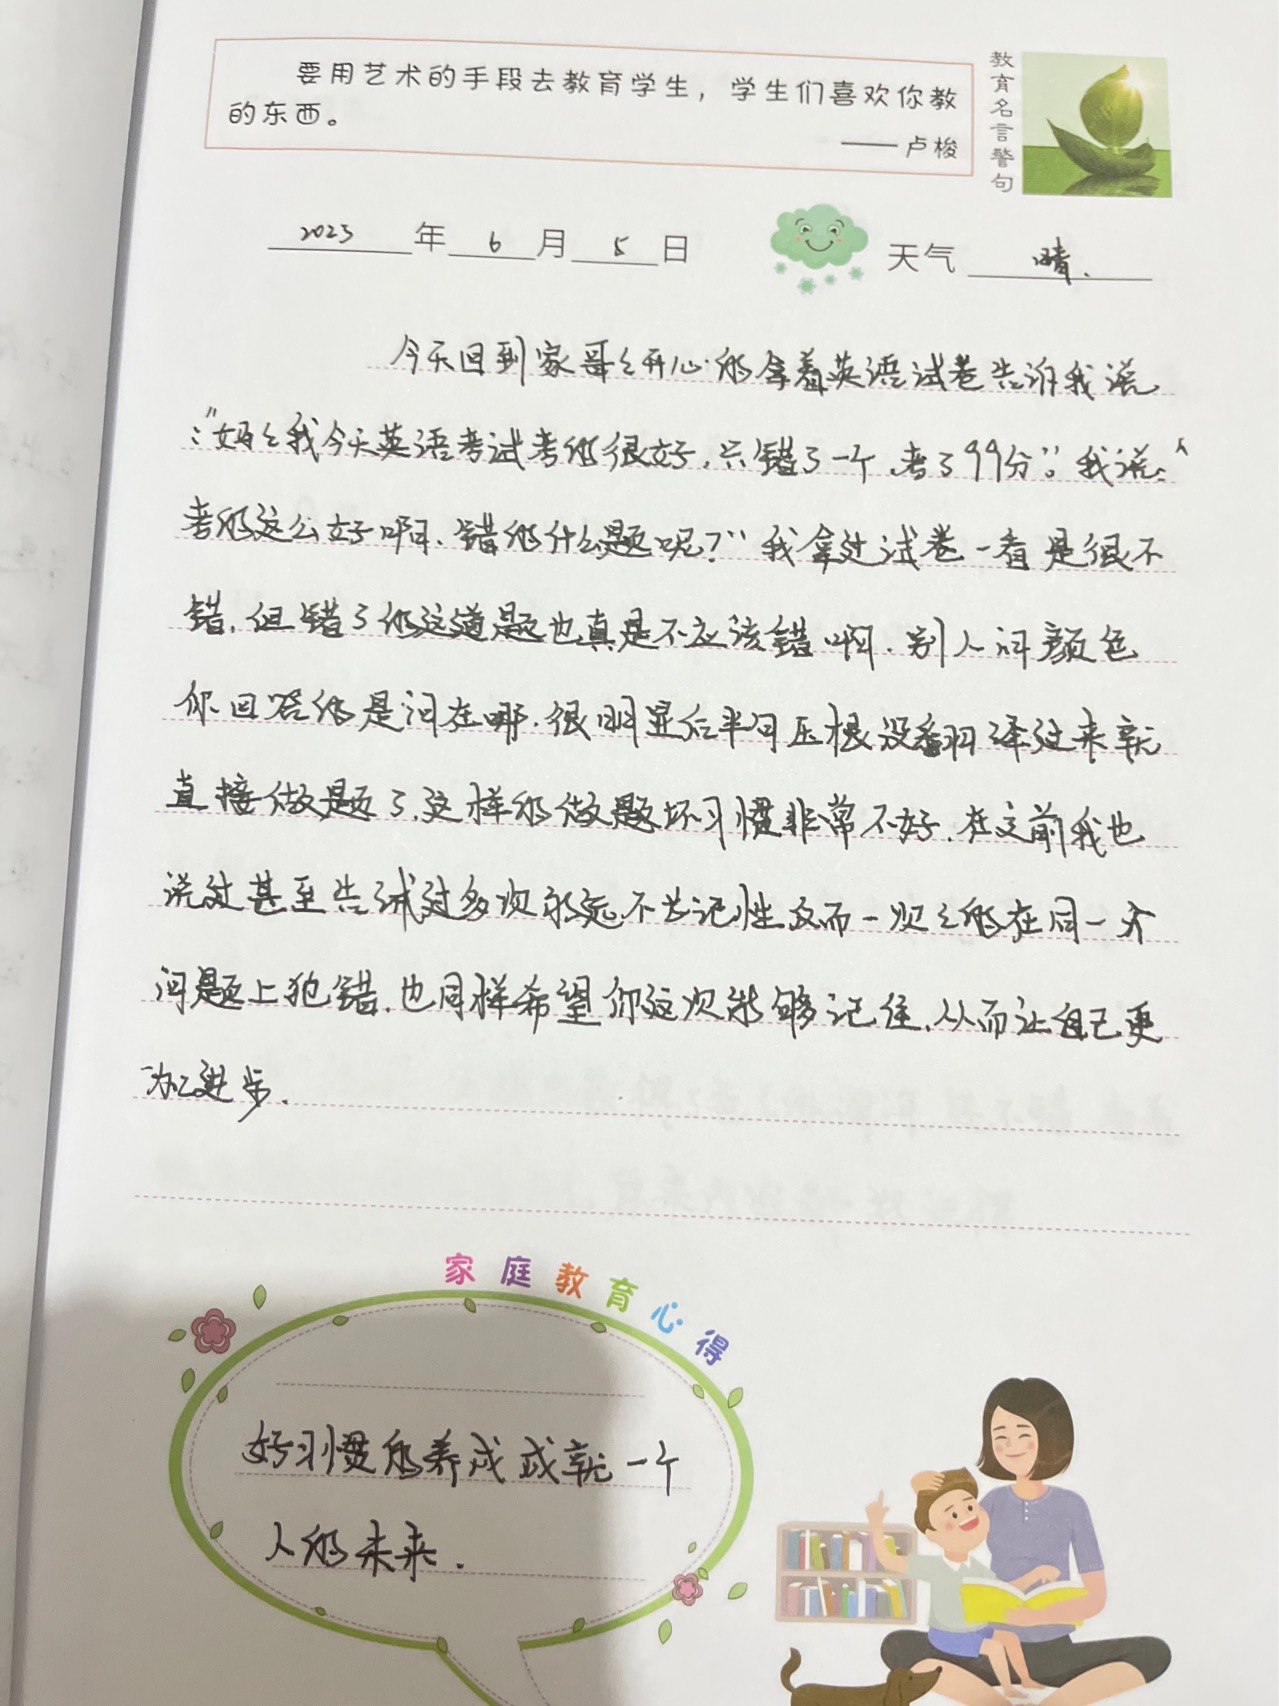 要用艺术的手段去教育学生，学生们喜欢你教
的东西。
——卢梭
教育名言警句
2023年6月5日 天气 晴.
今天回到家哥哥开心的拿着英语试卷告诉我说
:"妈妈我今天英语考试考的很好,只错了一个,考了99分"。我说:"
考的这么好啊,错的什么题呢?"我拿过试卷一看是很不
错,但错了的这道题也真是不应该错啊,别人问颜色
你回答的是问在哪,很明显后半句压根没翻译过来就
直接做题了,这样的做题坏习惯非常不好,在之前我也
说过甚至告诫过多次永远不长记性反而一次次的在同一个
问题上犯错,也同样希望你这次能够记住,从而让自己更
加进步.
家庭教育心得
好习惯的养成成就一个
人的未来.